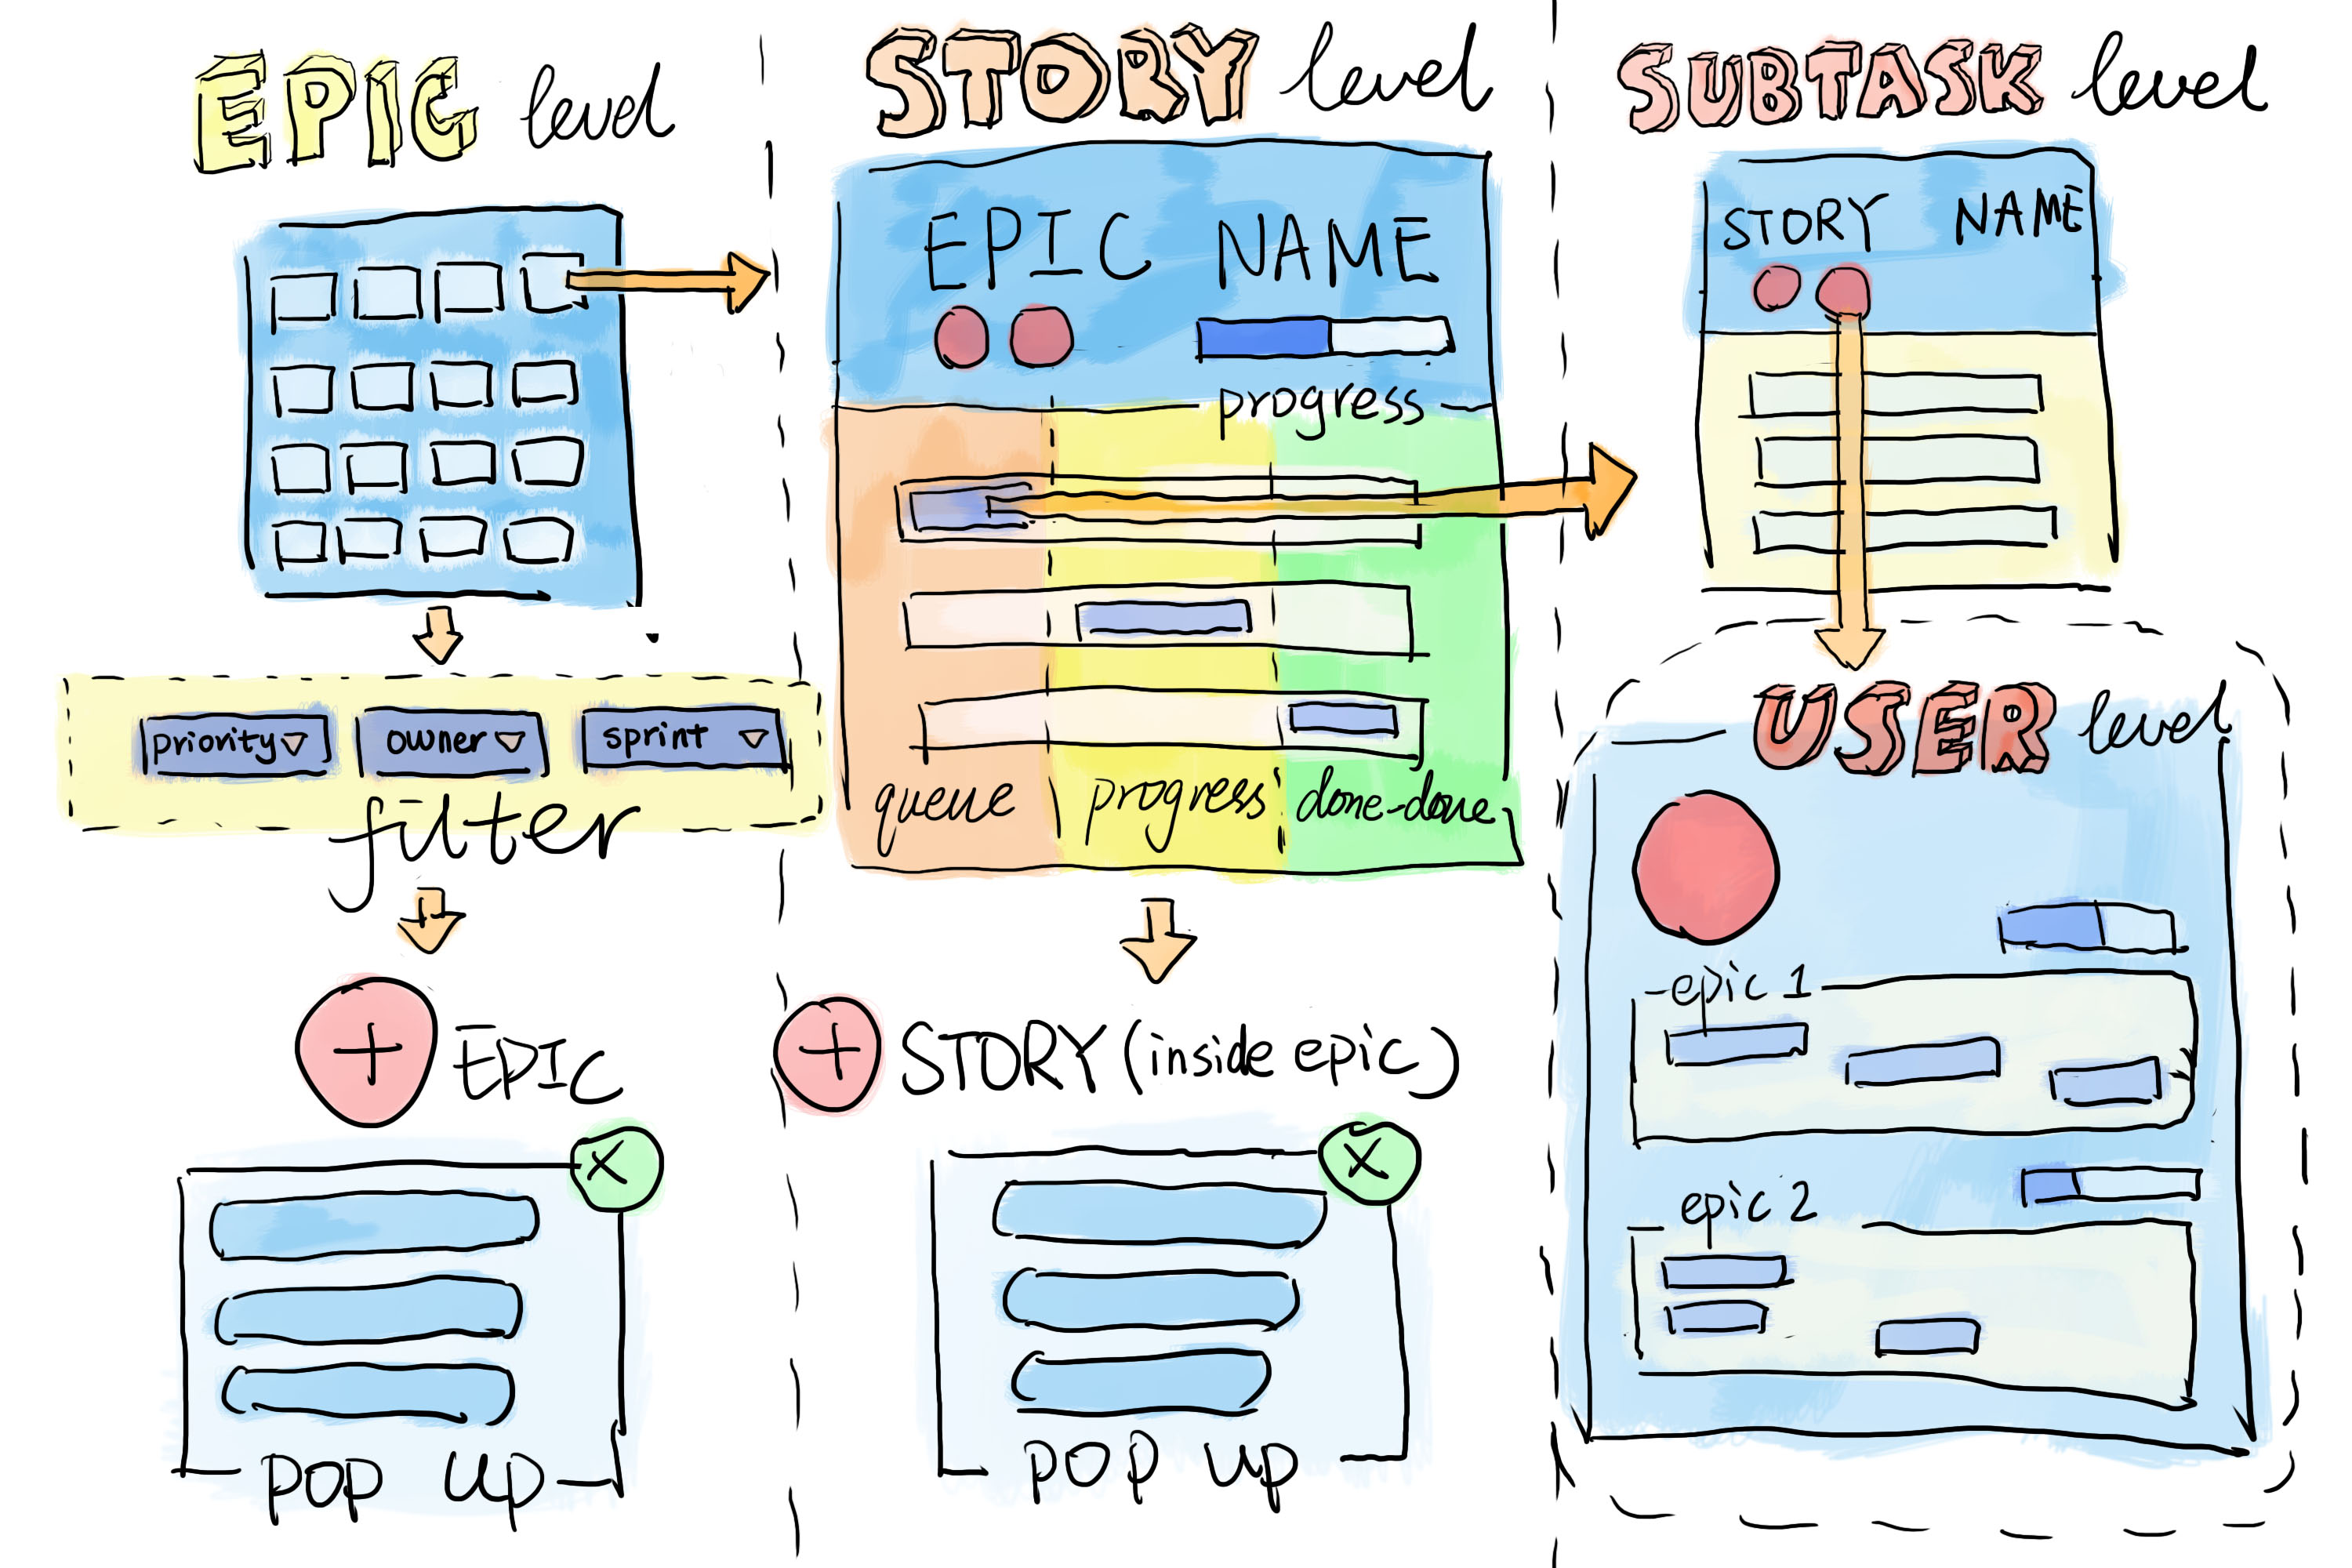 EPIC level
priority
owner
sprint
filter
+ EPIC
X
pop up
STORY level
EPIC NAME
progress
queue
progress
done-done
+ STORY (inside epic)
X
pop up
SUBTASK level
STORY NAME
USER level
epic 1
epic 2